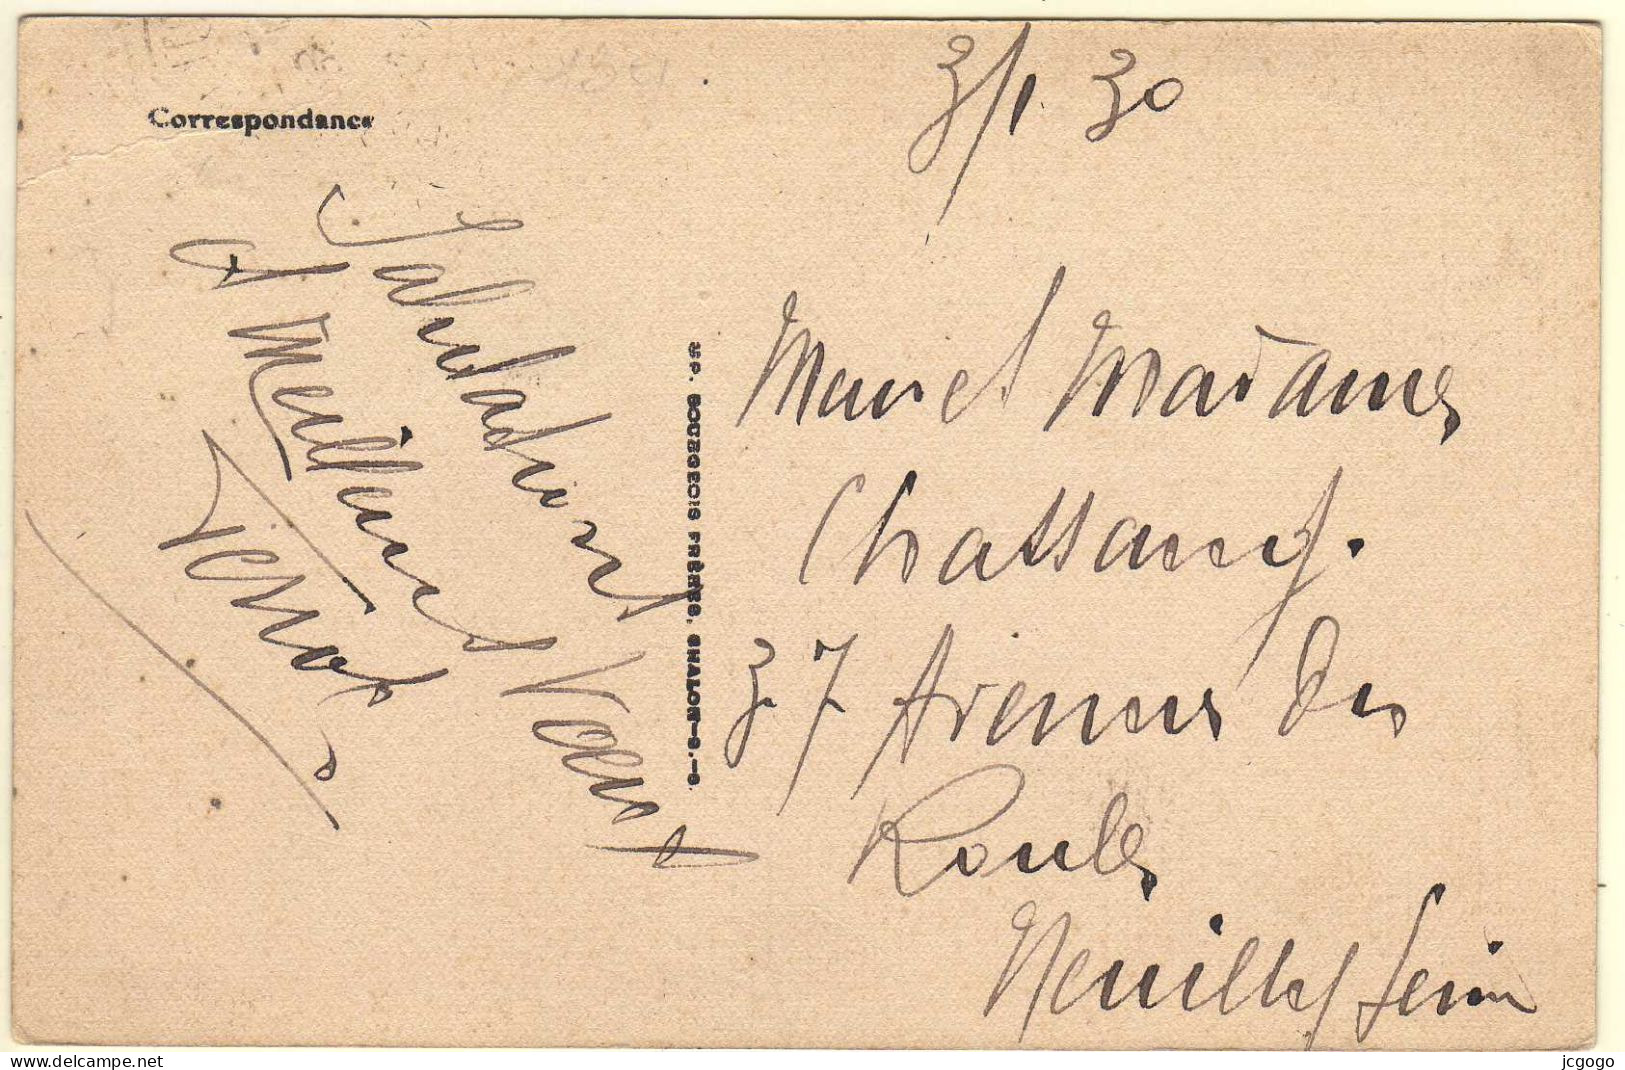 Correspondance
3/1 30
Salutations
et Meilleurs Voeux
IMP. BOURGEOIS FRÈRES, CHALON-S.-S.
Mr et Madame
Chassang.
37 Avenue du
Roule
Neuilly s/ Seine
www.delcampe.net
jcgogo